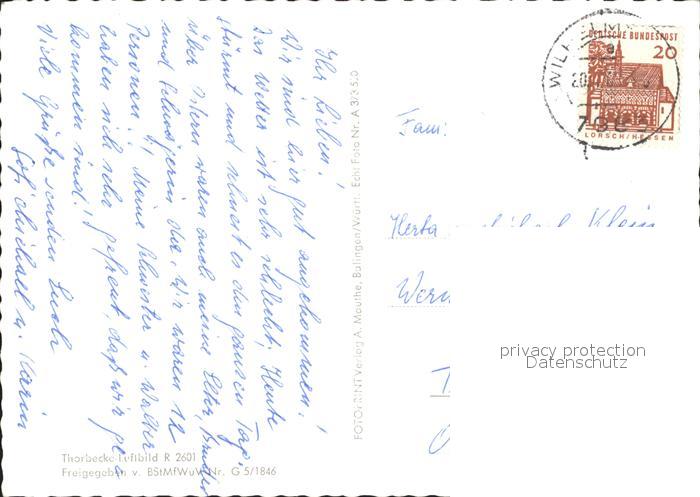 Ihr Lieben!
Wir sind hier gut angekommen!
Das Wetter ist sehr schlecht. Heute
stürmt und schneit es den ganzen Tag.
Über Ostern waren auch meine Eltern, Bruder
und Schwägerin da. Wir waren 12
Personen! Meine Schwester u. Walter
haben sich sehr gefreut, daß wir
kommen sind!
Viele Grüße senden Euch
Michael u. Karin
Thorbecke-Luftbild R 2601
Freigegeben v. BStMfWuV Nr. G 5/1846
FOTOPRINT Verlag A. Mauthe, Balingen/Württ. Echt Foto Nr. A 3/3 5.0
DEUTSCHE BUNDESPOST
20
LORSCH/HESSEN
Fam:
Herta Klein
privacy protection
Datenschutz